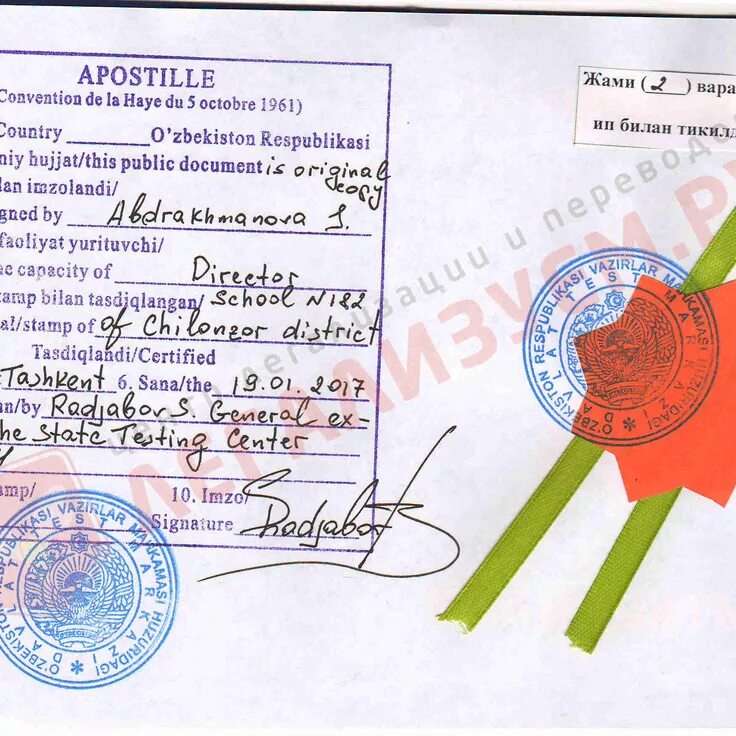 APOSTILLE
Convention de la Haye du 5 octobre 1961)
Country O'zbekiston Respublikasi
niy hujjat/this public document is original
copy
dan imzolandi/
gned by Abdrakhmanova
faoliyat yurituvchi/
he capacity of Director
tamp bilan tasdiqlangan/ School N182
al/stamp of of Chilonzor district
Tasdiqlandi/Certified
Tashkent 6. Sana/the 19.01.2017
an/by Radjabov S. General ex-
he State Testing Center
amp/ 10. Imzo/
Signature Radjabov S
Жами ( 2 ) вара
ип билан тикилд
O'ZBEKISTON RESPUBLIKASI VAZIRLAR MAHKAMASI HUZURIDAGI
DAVLAT TEST MARKAZI
O'ZBEKISTON RESPUBLIKASI VAZIRLAR MAHKAMASI HUZURIDAGI
DAVLAT TEST MARKAZI
центр легализации и переводов
ЛЕГАЛИЗУЕМ.РУ